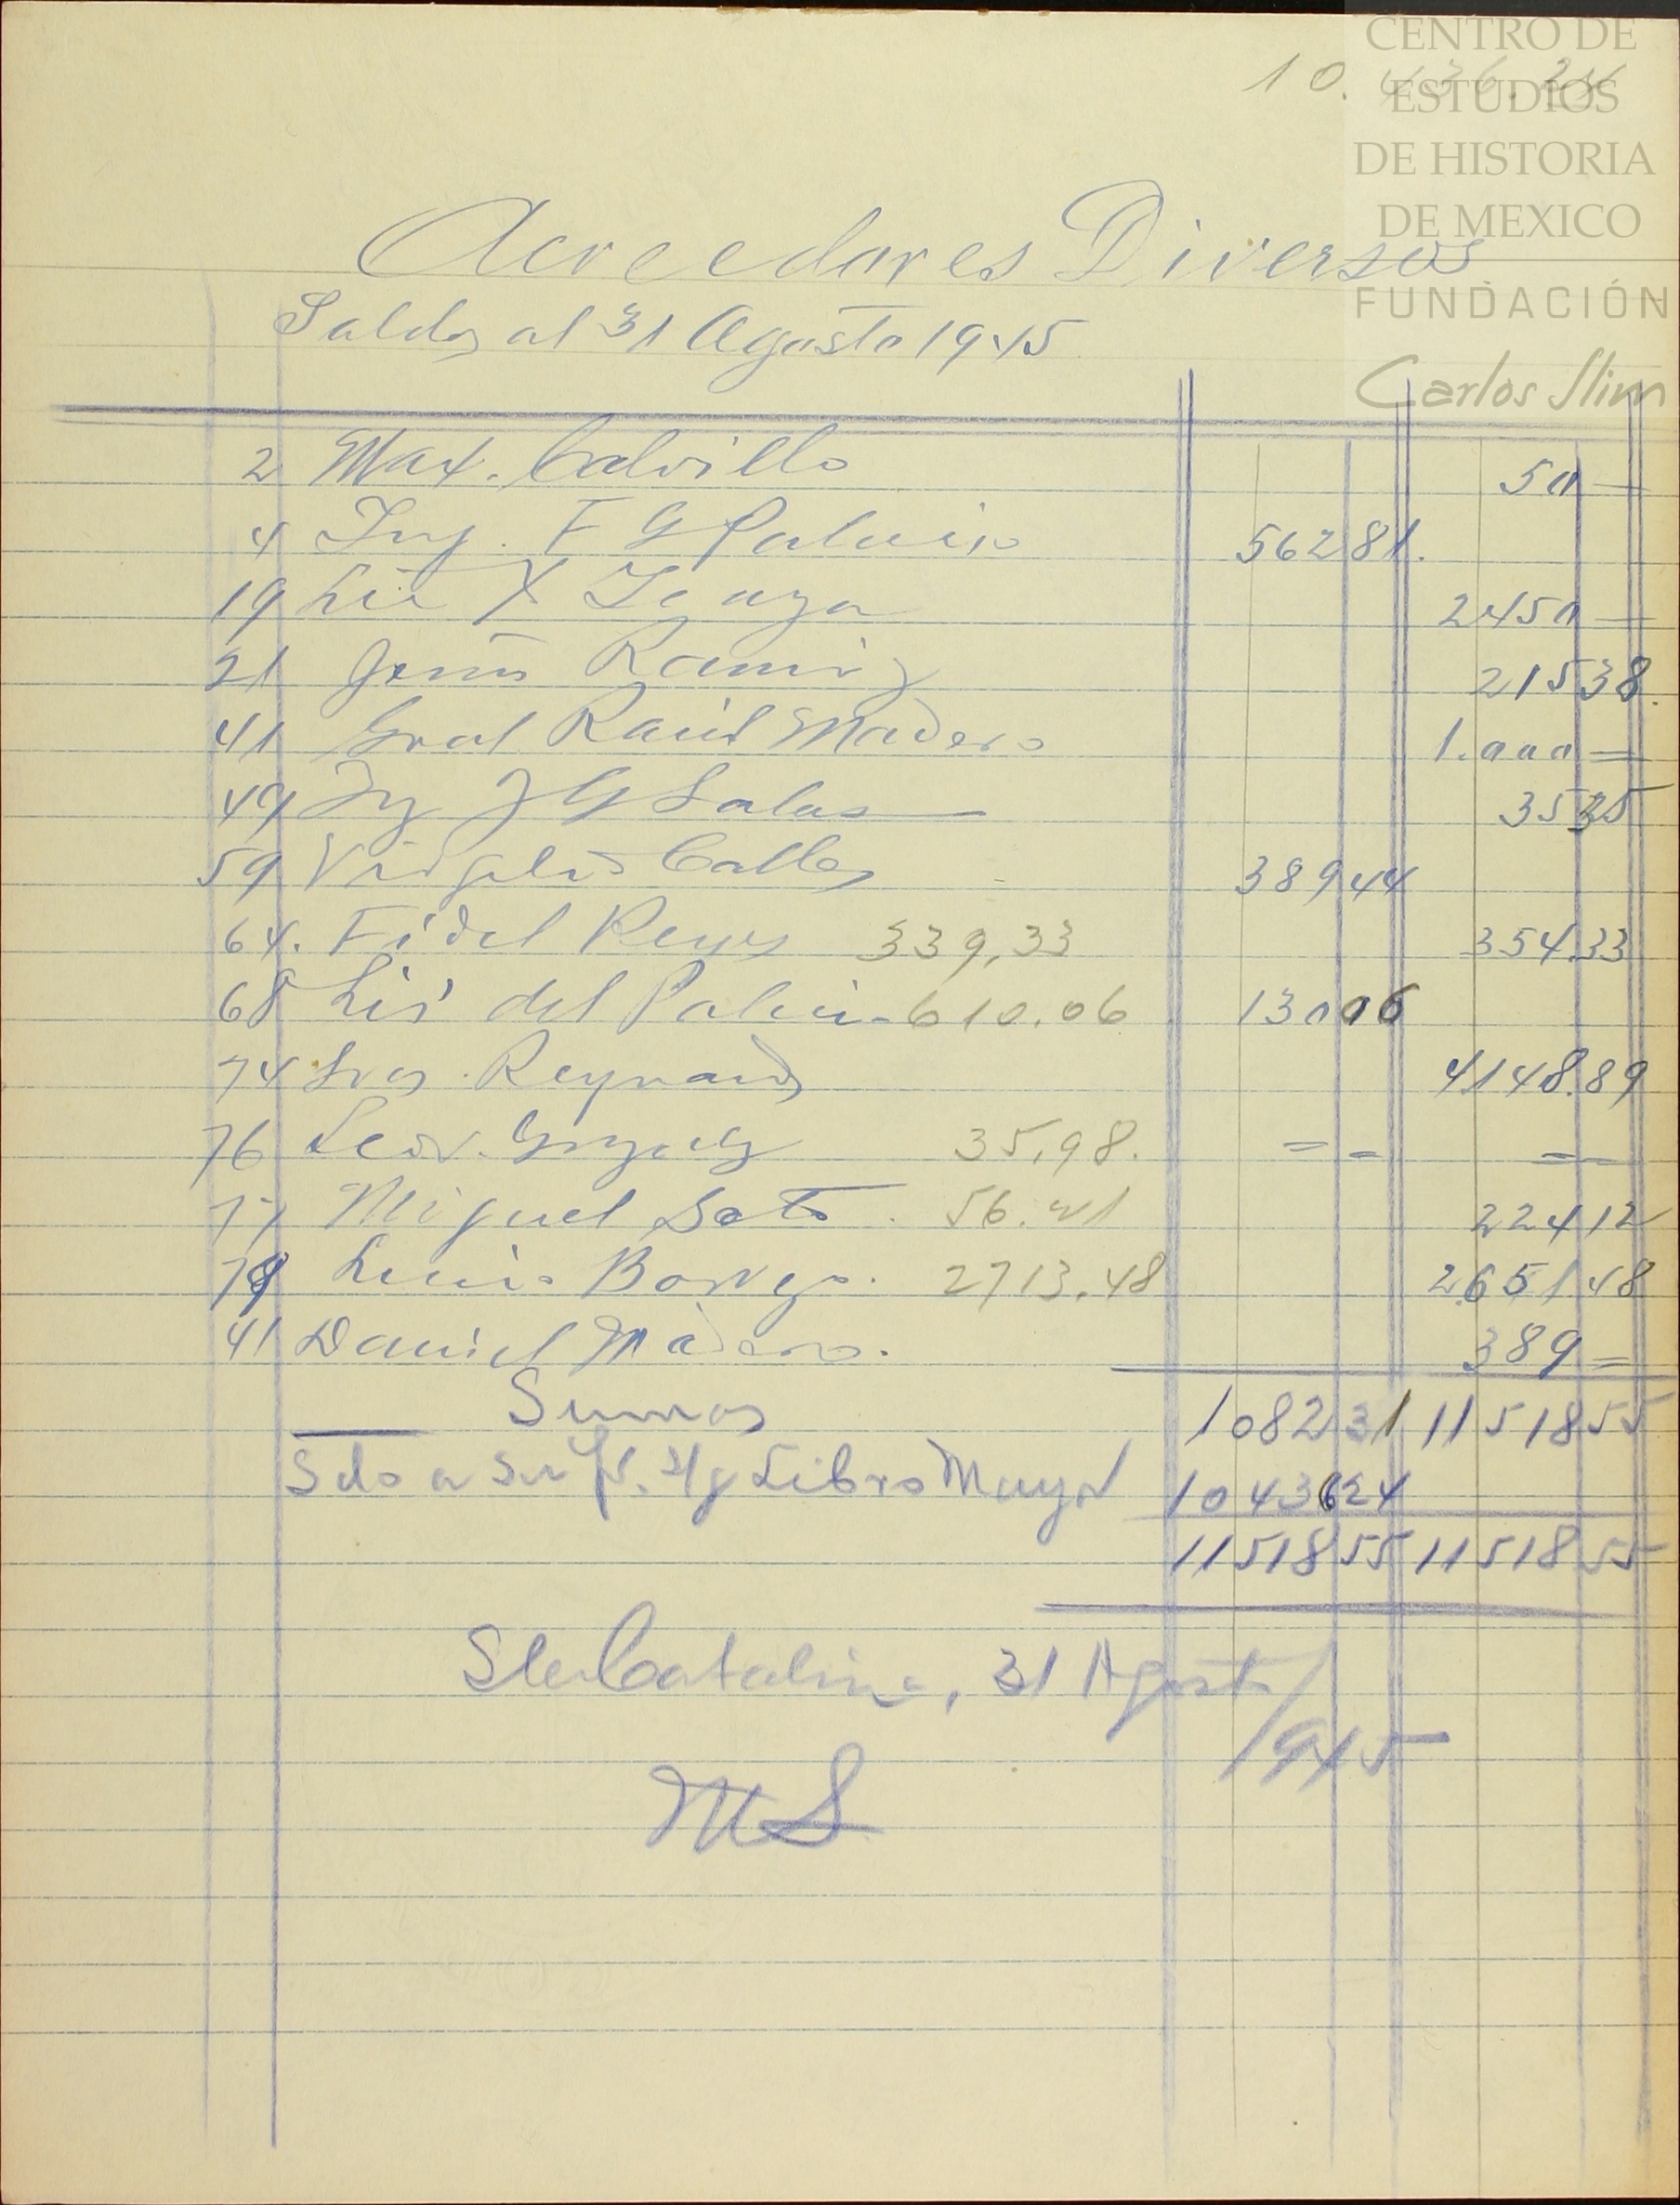 CENTRO DE
10.436.24
ESTUDIOS
DE HISTORIA
DE MEXICO
FUNDACIÓN
Carlos Slim
Acreedores Diversos
Saldos al 31 Agosto 1945
2 Max. Calvillo 50 —
4 Ing. F G Palacio 562 81.
19 Lic X Icaza 2450 —
21 Jesús Ramiz 215 38.
41 Gral Raúl Madero 1.000 =
49 Ing J G Salas 35 35
59 Virgilio Calles 389 44
64. Fidel Reyes 339,33 354.33
68 Lic del Palacio 610.06 130 06
74 Sres. Reynaud 4148.89
76 Leov. Gonzalez 35,98. = = = =
77 Miguel Soto. 56.41 224 12
79 Lucio Borrego. 2713.48 2651.48
41 Daniel Madero. 389 =
Sumas 1082 31 11518 55
Sdo a su fv. s/g Libro Mayor 10436 24
11518 55 11518 55
Sta Catalina, 31 Agosto/
1945
MS